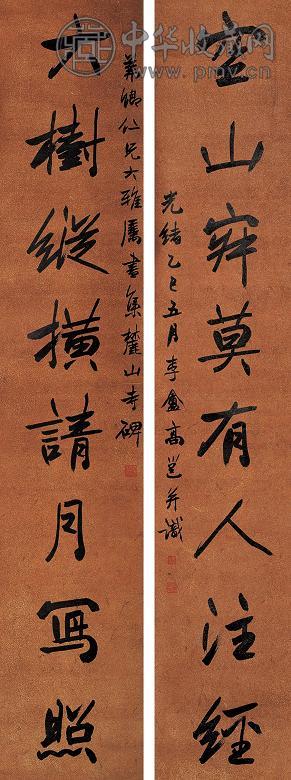 中华收藏网
空山寂莫有人注經
光緒乙巳五月李盦高邕并識
義卿仁兄大雅屬書集麓山寺碑
樹縱橫請月寫照